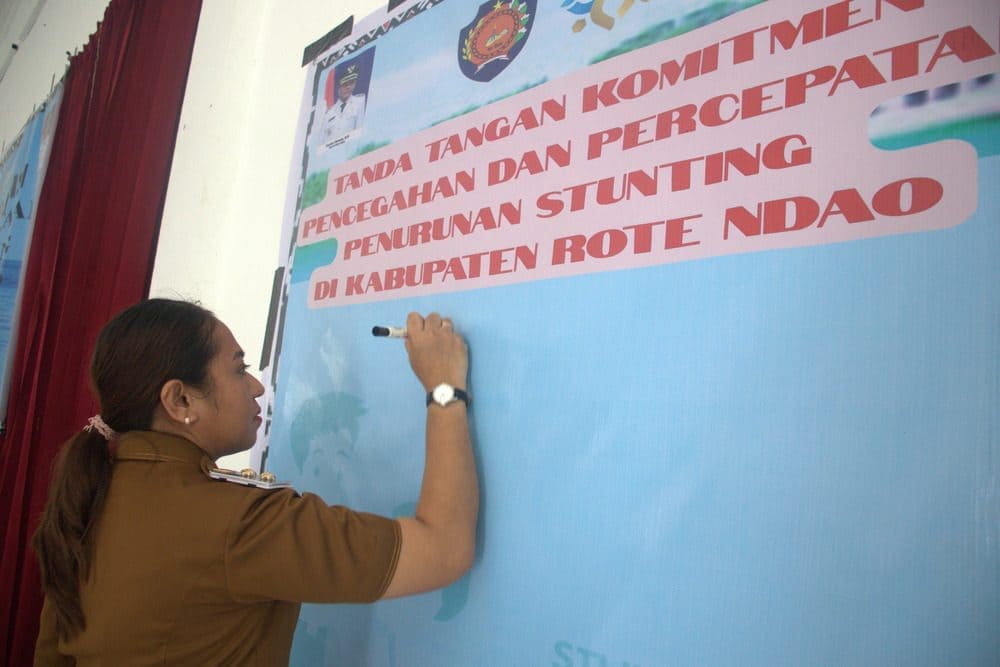 TANDA TANGAN KOMITMEN
PENCEGAHAN DAN PERCEPATA
PENURUNAN STUNTING
DI KABUPATEN ROTE NDAO